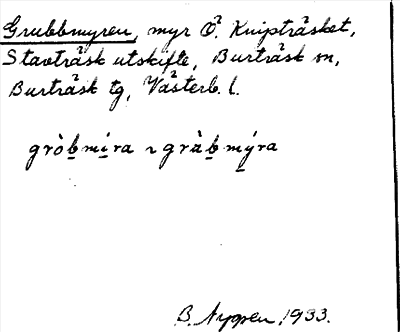 Grubbmyren, myr Ö. Knipträsket,
Stavträsk utskifte, Burträsk sn,
Burträsk tg, Västerb. l.
gròb̲mi̲ra ~ gràb̲mý̲ra
B. Nygren, 1933.